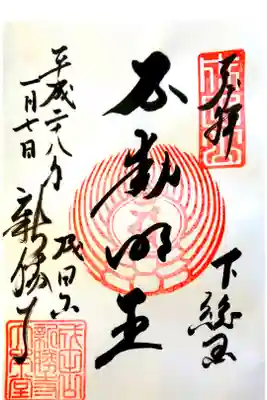 奉拝
成田山
下総国
不動明王
成田山
新勝寺
平成二十八年
一月七日
成田山
新勝寺
大本堂